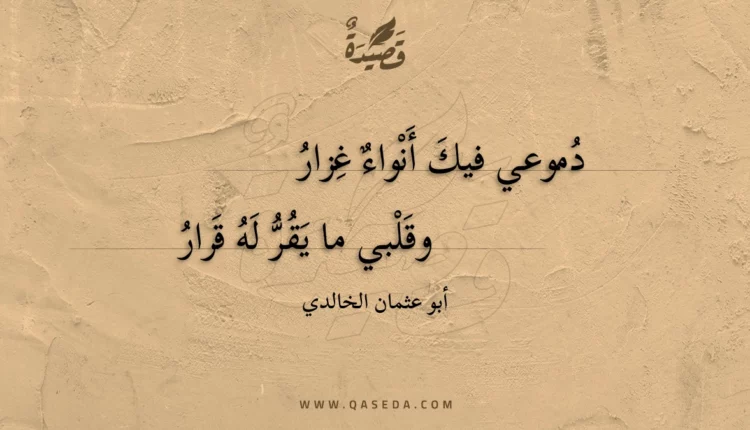 قَصِيدَةٌ
دُموعي فيكَ أَنْواءٌ غِزارُ
وقَلْبي ما يَقُرُّ لَهُ قَرارُ
أبو عثمان الخالدي
WWW.QASEDA.COM